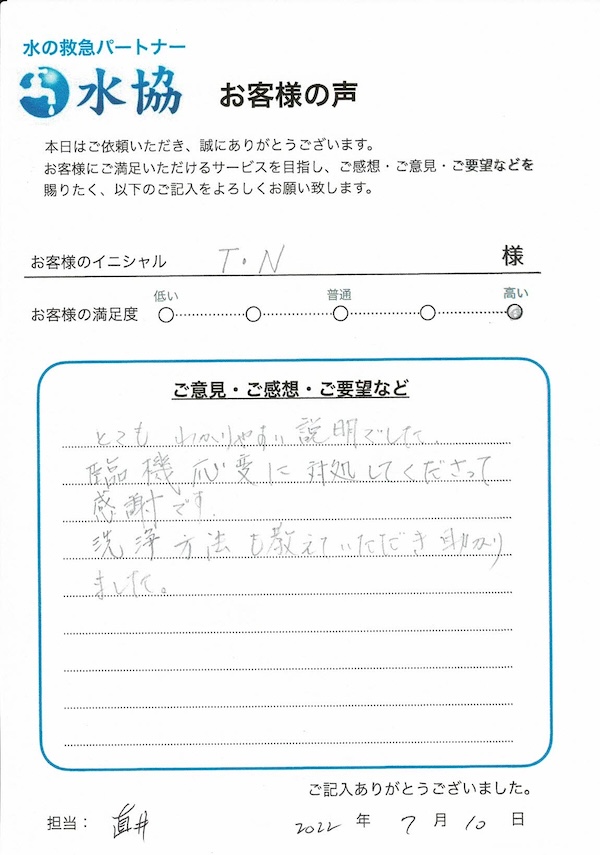 水の救急パートナー
水協 お客様の声
本日はご依頼いただき、誠にありがとうございます。
お客様にご満足いただけるサービスを目指し、ご感想・ご意見・ご要望などを
賜りたく、以下のご記入をよろしくお願い致します。
お客様のイニシャル T・N 様
低い 普通 高い
お客様の満足度
ご意見・ご感想・ご要望など
とてもわかりやすい説明でした。
臨機応変に対処してくださって
感謝です。
洗浄方法も教えていただき助かり
ました。
ご記入ありがとうございました。
担当： 直井 2022 年 7 月 10 日